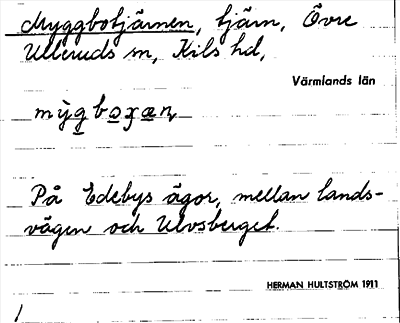 Myggbotjärnen, tjärn, Övre
Ulleruds sn, Kils hd,
Värmlands län
På Edebys ägor, mellan lands-
vägen och Ulvsberget.
HERMAN HULTSTRÖM 1911
1